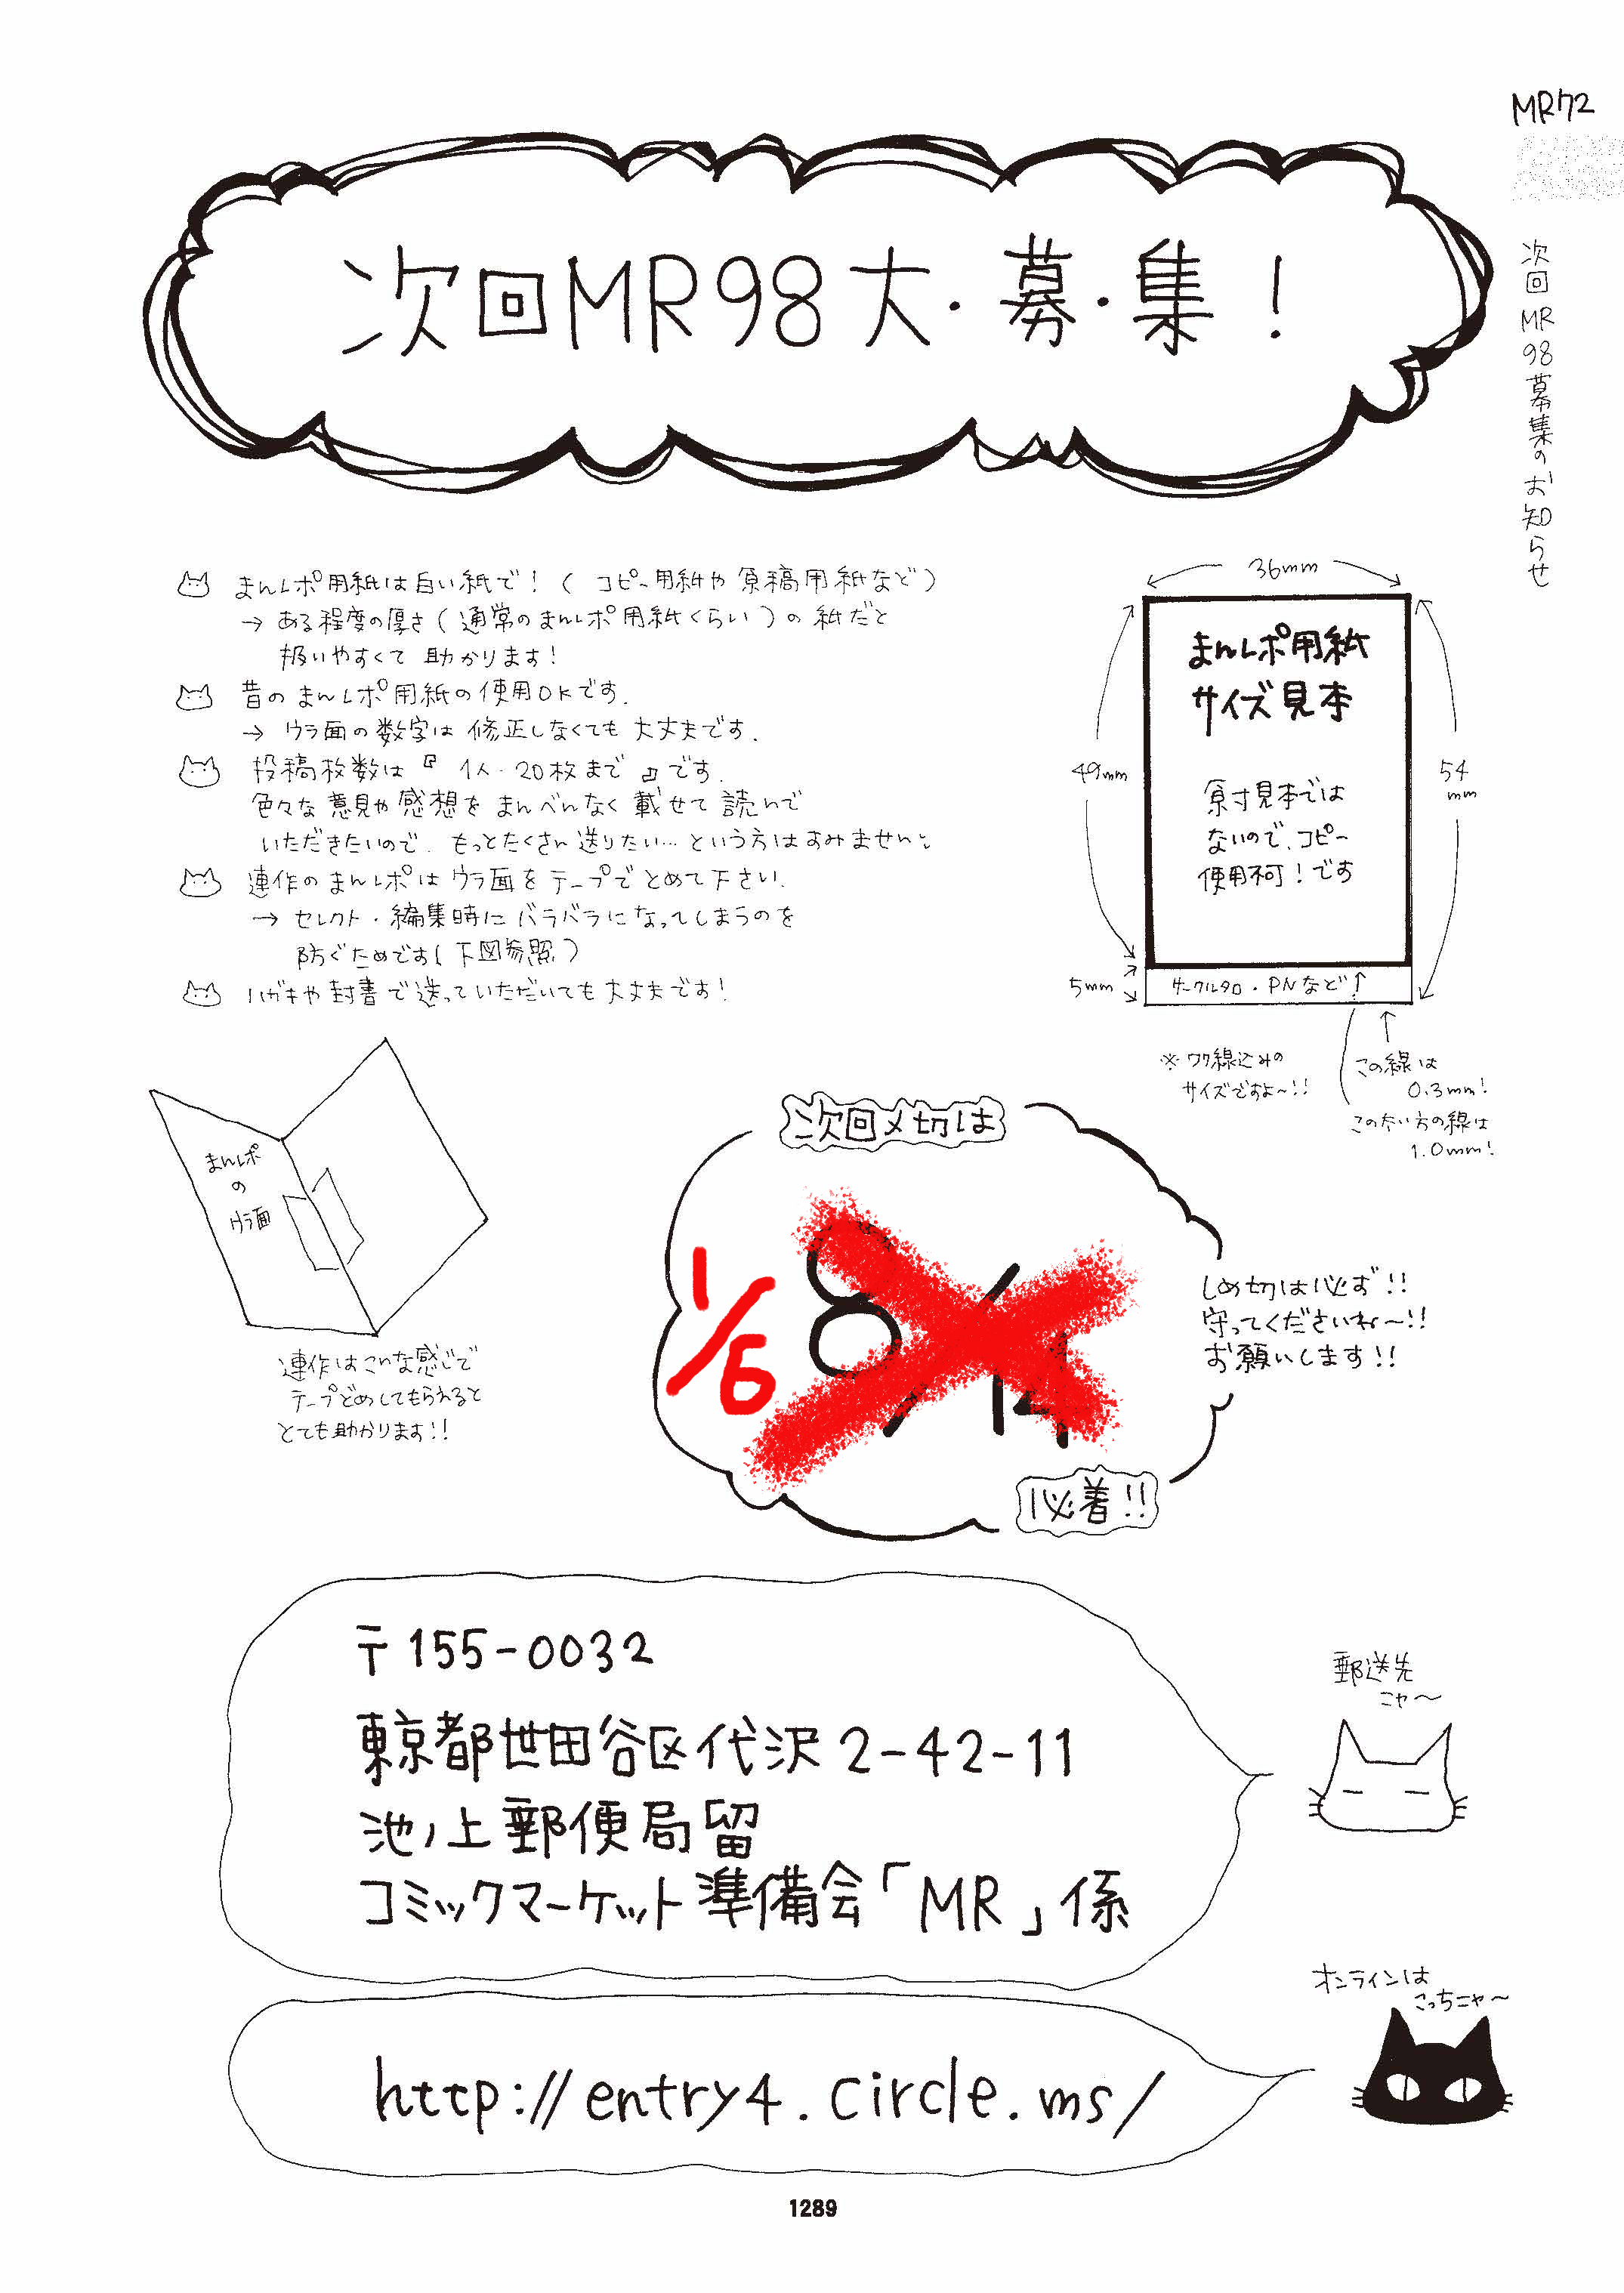 MR72
次回MR98募集のお知らせ
次回MR98大・募・集!
まんレポ用紙は白い紙で!(コピー用紙や原稿用紙など)
→ある程度の厚さ(通常のまんレポ用紙くらい)の紙だと
扱いやすくて助かります!
昔のまんレポ用紙の使用OKです.
→ウラ面の数字は修正しなくても大丈夫です.
投稿枚数は『1人・20枚まで』です.
色々な意見や感想をまんべんなく載せて読んで
いただきたいので.もっとたくさん送りたい…という方はすみません;
連作のまんレポはウラ面をテープでとめて下さい.
→セレクト・編集時にバラバラになってしまうのを
防ぐためです(下図参照)
ハガキや封書で送っていただいても大丈夫です!
36mm
49mm
54mm
5mm
まんレポ用紙
サイズ見本
原寸見本では
ないので、コピー
使用不可!です
サークル名・PNなど↑
※ワク線込みの
サイズですよ〜!!
この線は
0.3mm!
この太い方の線は
1.0mm!
まんレポ
の
ウラ面
連作はこんな感じで
テープどめしてもらえると
とても助かります!!
次回〆切は
8/14
1/6
必着!!
しめ切は必ず!!
守ってくださいね〜!!
お願いします!!
〒155-0032
東京都世田谷区代沢2-42-11
池ノ上郵便局留
コミックマーケット準備会「MR」係
郵送先
ニャ〜
オンラインは
こっちニャ〜
http://entry4.circle.ms/
1289